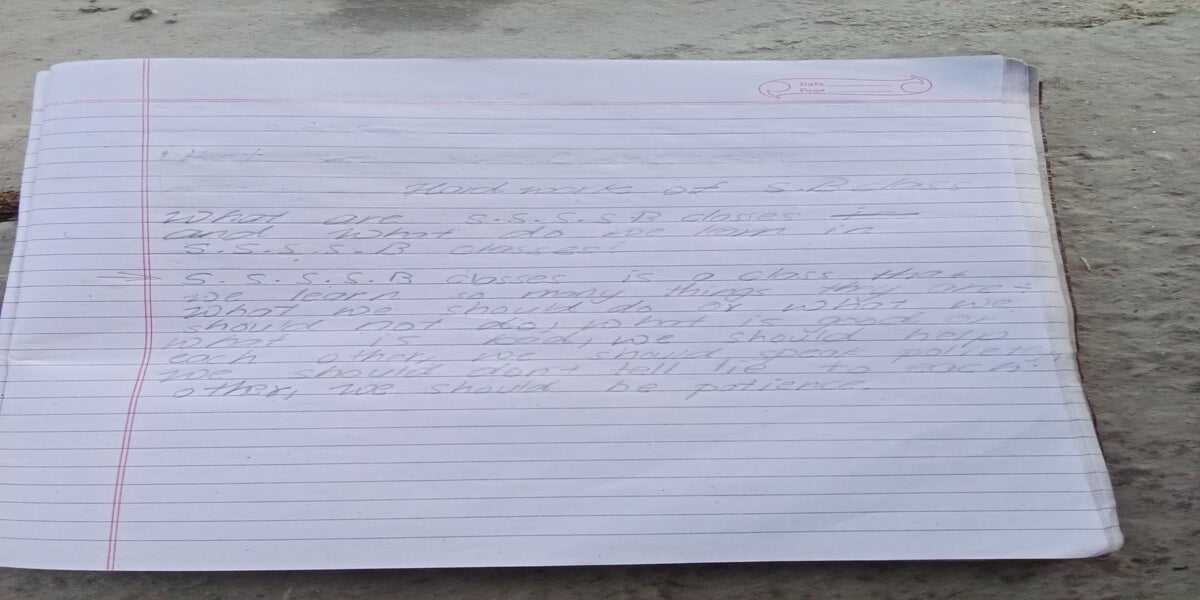 Date
Page
Hard mark of S.B class
What are S.S.S.S.B classes
and what do we learn in
S.S.S.S.B classes?
→ S.S.S.S.B classes is a class that
we learn so many things they are:
What we should do or what we
should not do, what is good or
what is bad, we should help
each other, we should speak politely,
we should don't tell lie to each
other, we should be patience.